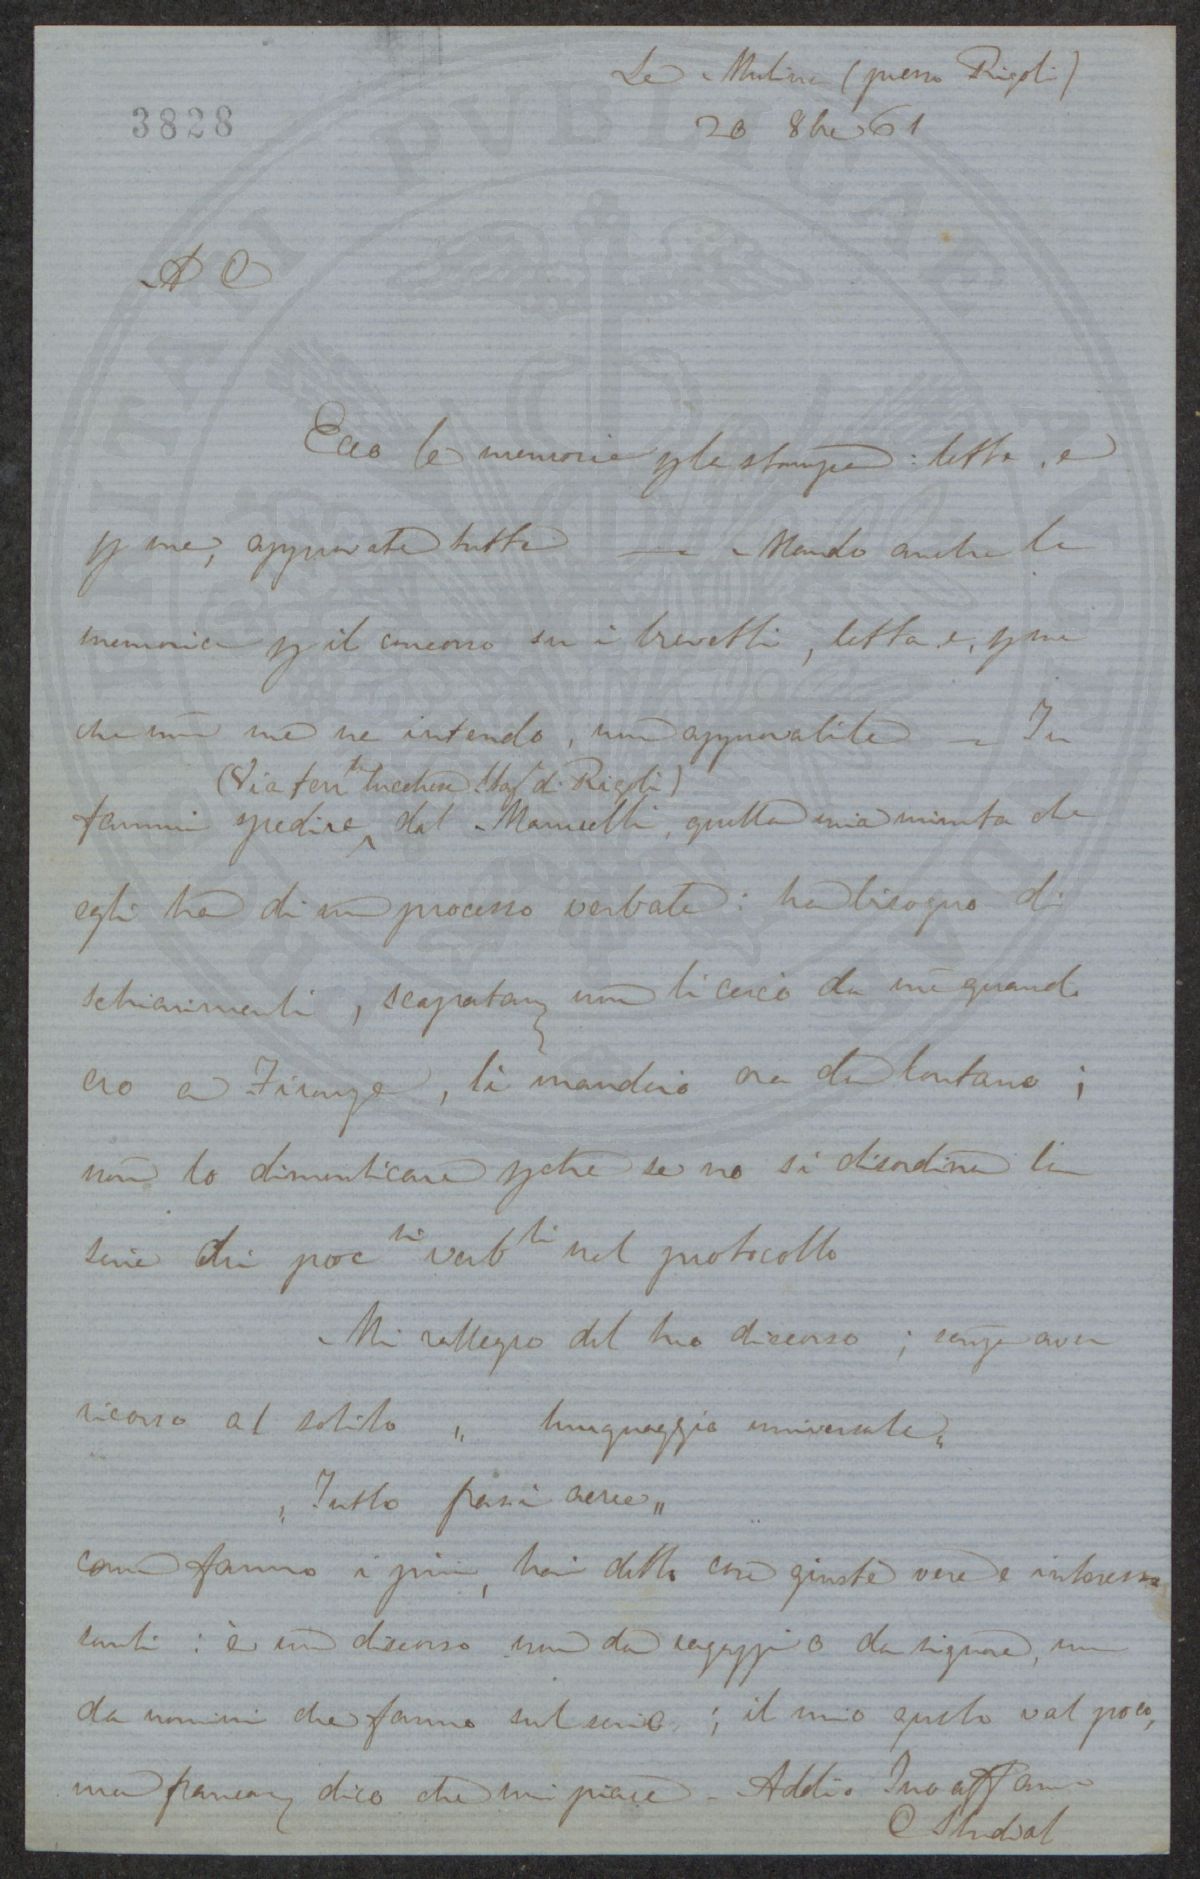 Le Mulina (presso Rigoli)
3828
20 8bre 61
A C
Ecco le memorie p la stampa: lette, e
p me, approvate tutte — Mando anche la
memoria p il concorso su i brevetti, letta e, p me
che non me ne intendo, non approvabile — Tu
(Via ferr lucchese Staz di Rigoli)
fammi spedire dal Mannelli, quella mia minuta che
egli ha di un processo verbale: ha bisogno di
schiarimenti, non li cercò da me quando
ero a Firenze, li manderò ora da lontano;
non lo dimenticare pche se no si disordina la
serie dei procsi verbli nel protocollo
Mi rallegro del tuo discorso; senza aver
ricorso al solito „ linguaggio universale„
„ Tutto frasi aeree„
come fanno i più, hai detto cose giuste vere e interes
santi: è un discorso non da ragazzi o da signore, ma
da uomini che fanno sul serio; il mio gusto val poco,
ma dico che mi piace - Addio Tuo aff am
C Studiati